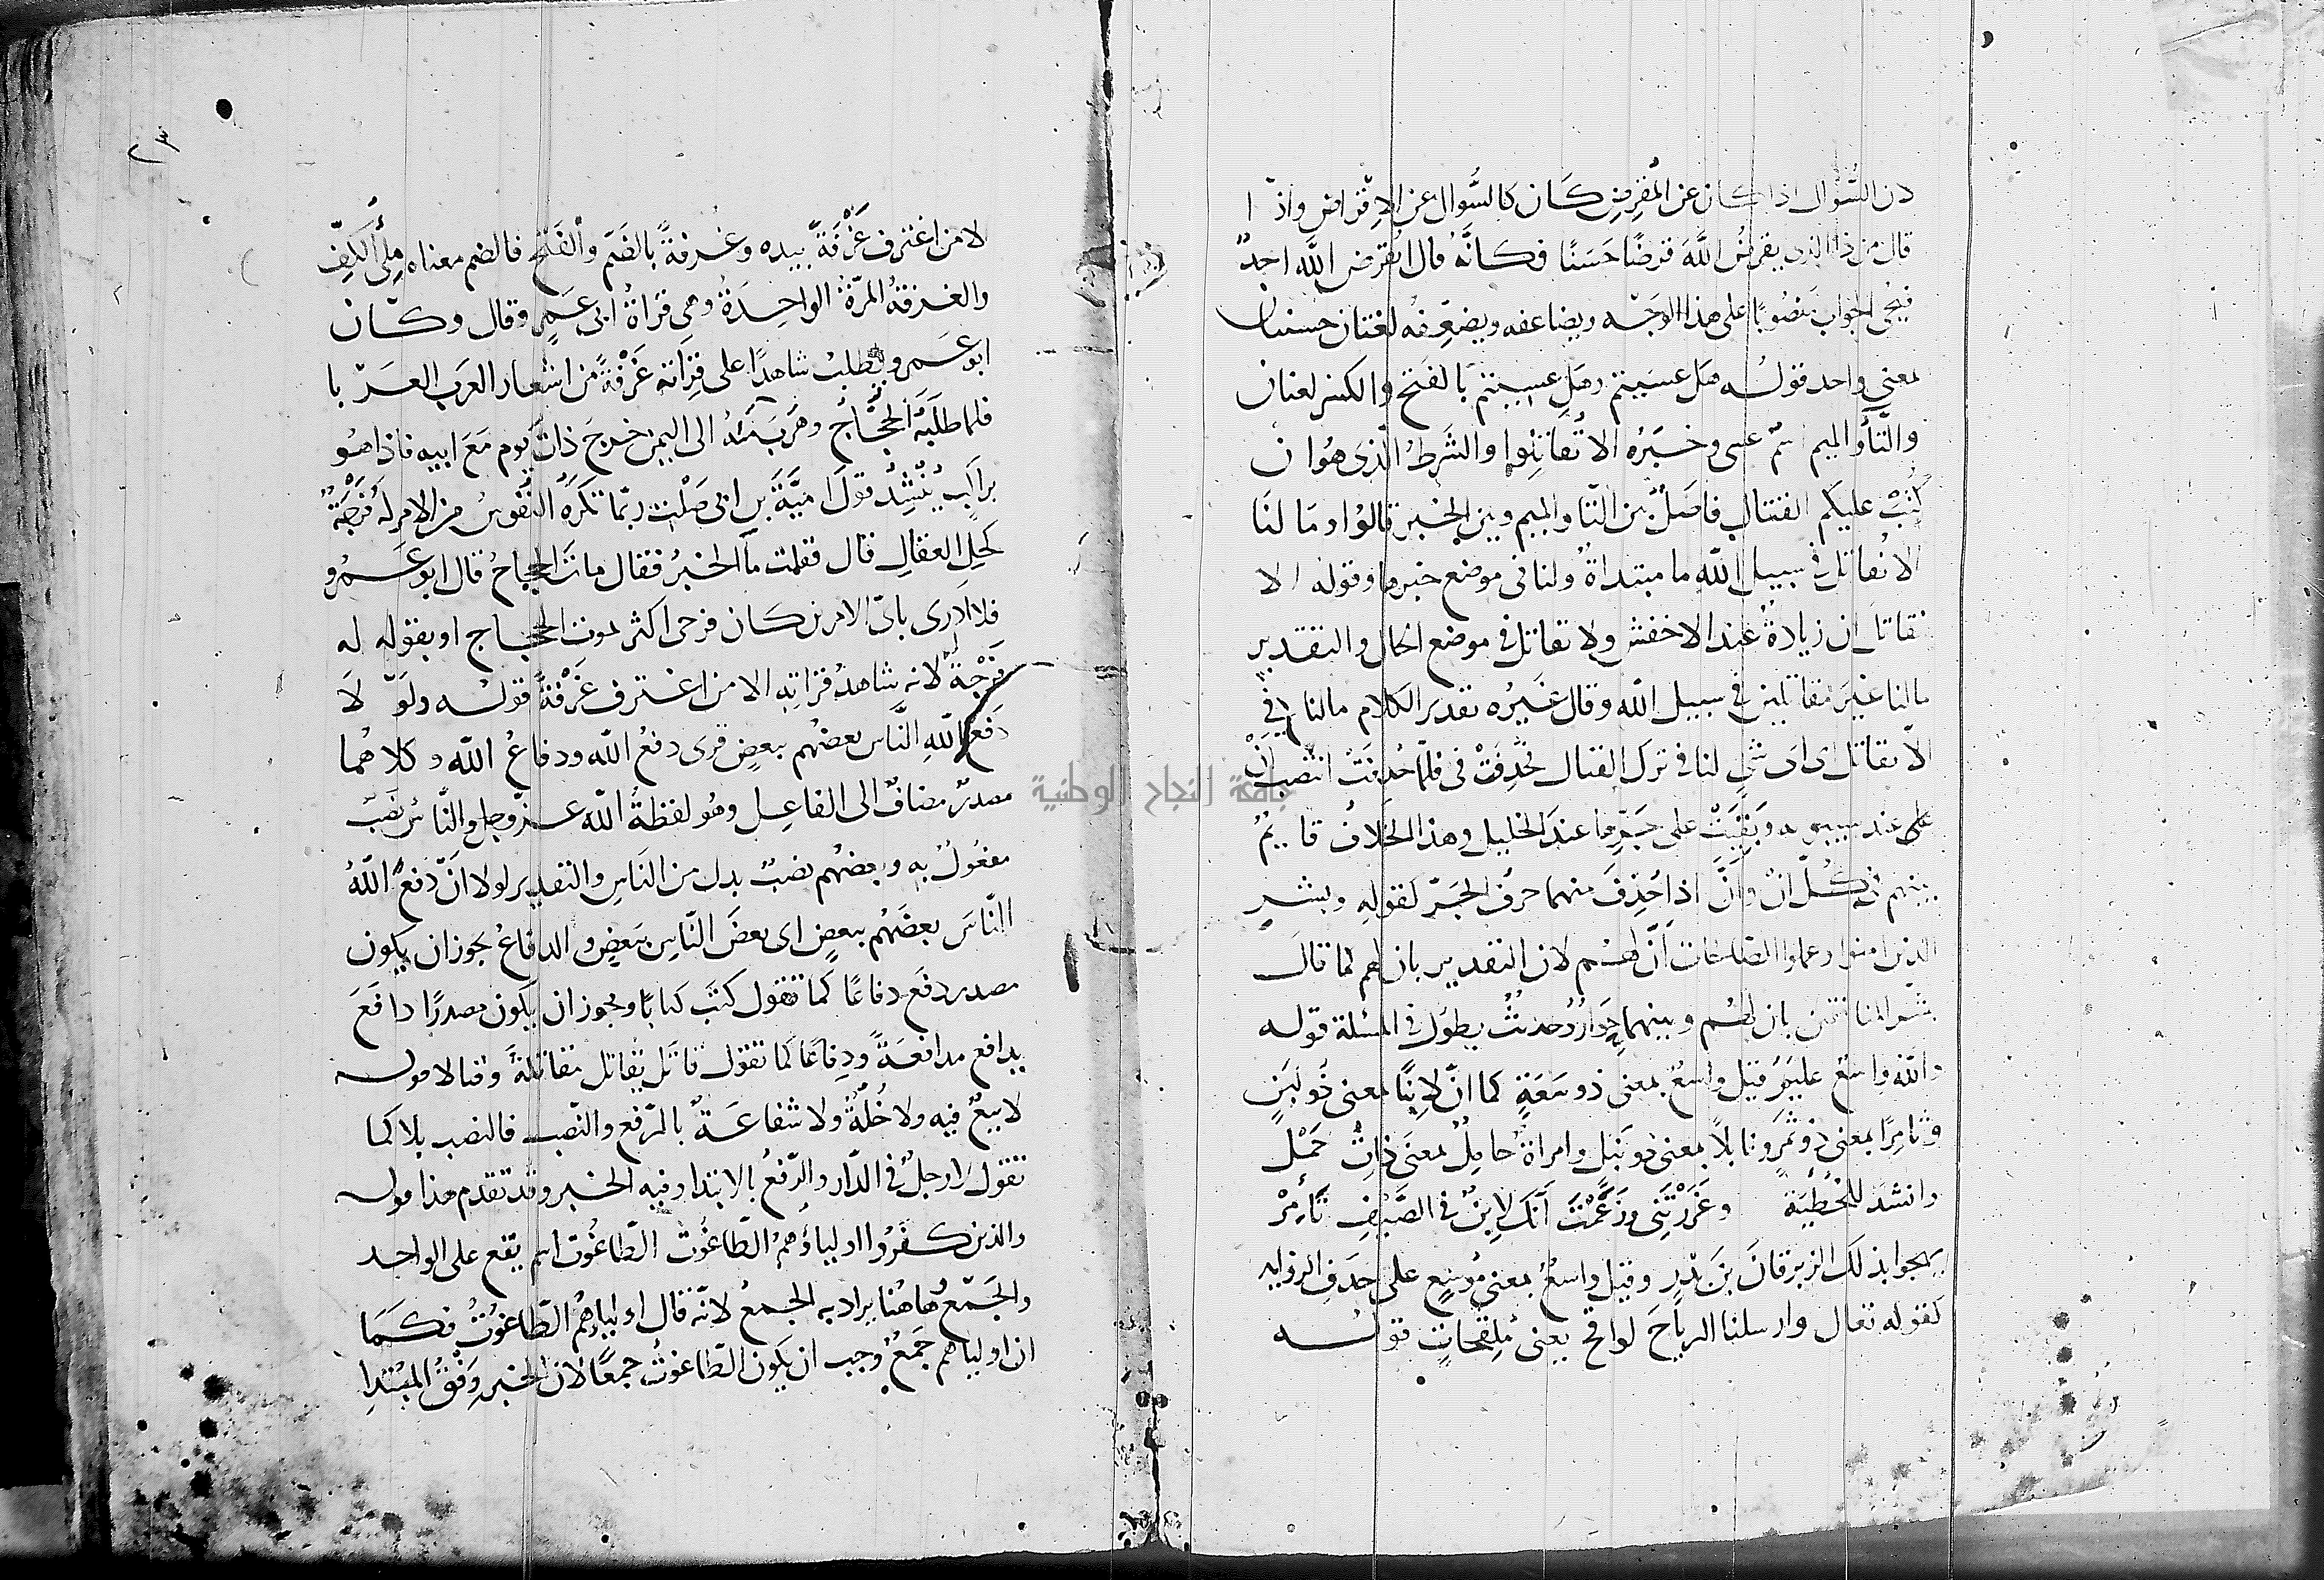 لان السُّوال اذا كان عن المُقرِضِ كَان كالسُّوال عن الاِقتراض واذا
قال من ذا الذى يقرضُ اللَّهَ قرضًا حَسَنًا فكانَّهُ قال ايُقرض اللَّه احدٌ
فيجى الجواب منصُوبًا على هذا الوَجه ويضاعفه ويضعِّفه لغتان حسنتان
بمعنى واحد قولُه هَل عسَيتم وهَل عسِيتم بَالفَتح والكسر لغتان
والتَّا والميم اسم عسى وخبَرُه الا تُقاتِلُوا والشَرطُ الّذى هُو ان
كُتبَ عليكم القتال فاصَلٌ بين التّا والميم وبين الخبر قالوُا ومَا لنَا
الا نُقاتل فى سبيل اللَّهِ ما مبتداةٌ ولنا فى موضع خبرها وقوله الا
نقاتل ان زيادةٌ عند الاخفش ولا نقاتل فى موضع الحال والتقدير
مالنا غيرَ مقاتلين فى سبيل الله وقال غيرُه تقدير الكلام مالنا فِى
الّا نقاتل اى اى شىٍ لنا فى ترك القتال فحُذِفَتْ فى فلمّا حُذفَتْ انتصب اَنْ
على عند سيبويه وبَقِيَتْ على جَرِّها عندَ الخليل وهذا الخَلافُ قايمٌ
بينهم فى كُلّ اَنْ واَنَّ اذا حُذِفَ منهما حرفُ الجَرّ كقولِهِ وبشرِ
الذين امنوا وعملوا الصّالحات اَنَّ لهُم لان التقدير بان لهم كما قال
بشّر المنافقين بان لهُم وبينهما حِوارٌ وحديثٌ يطوُل فى المسئلة قوله
واللَّه واسعٌ عليمٌ قيل واسعٌ بمعنى ذو سَعَةٍ كما انّ لابِنًا بمعنى ذُو لبَنٍ
وتامِرًا بمعنى ذُو تَمرٍ ونابلاً بمعنى ذو نَبلٍ وامراةٌ حاملٌ بمعنَى ذاتُ حَمْلٍ
وانشدَ للحُطَيْئة وغَرَرْتَنِى وزَعَمْتَ اَنَّكَ لابِنٌ فى الصَّيْفِ تَامِرْ
يهجوا بذلك الزبرقانَ بنَ بَدْرٍ وقيل واسعٌ بمعنى مُوسِعٍ على حَذفِ الزوايد
كقوله تعال وارسلنا الرياحَ لواقح يعنى مُلقحاتٍ قولُه
٢٣
الا من اغترف غَرْفَةً بيده وغُرفةً بالضَم والفَتح فالضم معناه مِلْءُ الكَفِّ
والغَرفةُ المرَّةُ الواحِدَةُ وهى قراةُ ابى عَمرٍ وقال وكان
ابو عَمرو يطلبُ شاهدًا على قراته غَرْفةً من اشعار العرَب العَرْبا
فلما طلَبَهُ الحجَّاجُ وهَرَبَ منهُ الى اليمن خرجَ ذاتَ يوم مَعَ ابيه فاذا هُو
براكبٍ يُنْشِدُ قولَ اميَّةَ بن ابى صَلْت ربّما تكرَهُ النُّفُوسُ من الامر لهُ فَرْجَةٌ
كَحَلِّ العقالِ قال فقلت ما الخبرُ فقال ماتَ الحجاجُ قال ابو عَمرو
فلا اَدرى باىّ الامرين كان فرحى اكثر بموت الحجّاج او بقوله له
فَرْجةٌ لانه شاهدُ قراتِه الا من اغترف غَرْفةً قولُه ولَوْ لَا
دَفعُ اللَّهِ النَّاس بعضَهُم ببعضٍ قرى دفعُ اللَّه ودفاعُ اللّه وكلاهُما
مصدرٌ مضافٌ الى الفاعِل وهُو لفظةُ اللّه عزَّ وجل والنَّاسُ نصَبٌ
مفعُولٌ بِهِ وبعضَهُم نصبٌ بدل من النَّاسِ والتقدير لولا انْ دَفعَ اللَّهُ
النَّاسَ بعضَهُم ببعضٍ اى بعضَ النَّاسِ ببَعضٍ والدفاعُ يجوز ان يكون
مصدر دفعَ دفاعًا كما تقول كتبَ كتابًا ويجوز ان يكون مصدرًا دافَعَ
يدافع مدافعَةً ودِفاعًا كما تقول قاتَل يُقاتل مقاتلةً وقتالا قوله
لا بيعٌ فيه ولا خُلّةٌ ولا شفاعَةٌ بالرّفع والنّصب فالنصب بلا كما
تقول لا رجلَ فى الدّار والرّفعُ بالابتدا وفيه الخبر وقد تقدم هذا قوله
والذين كفَرُوا اولياؤهمُ الطَّاغُوت الطّاغُوت اسم يقع على الواحِد
والجَمْعُ هاهُنا يراد به الجمعُ لانّه قال اولياؤهمُ الطَّاغُوتُ فكَما
ان اولياهم جَمعٌ وجب ان يكون الطّاغوتُ جمعًا لان الخبر وَفقُ المبتدا
جامعة النجاح الوطنية